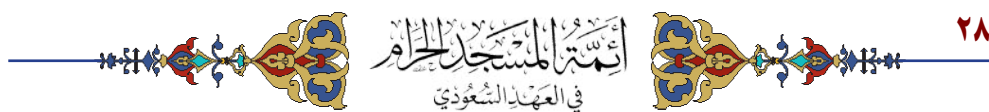 ٢٨
أئمة المسجد الحرام
في العهد السعودي